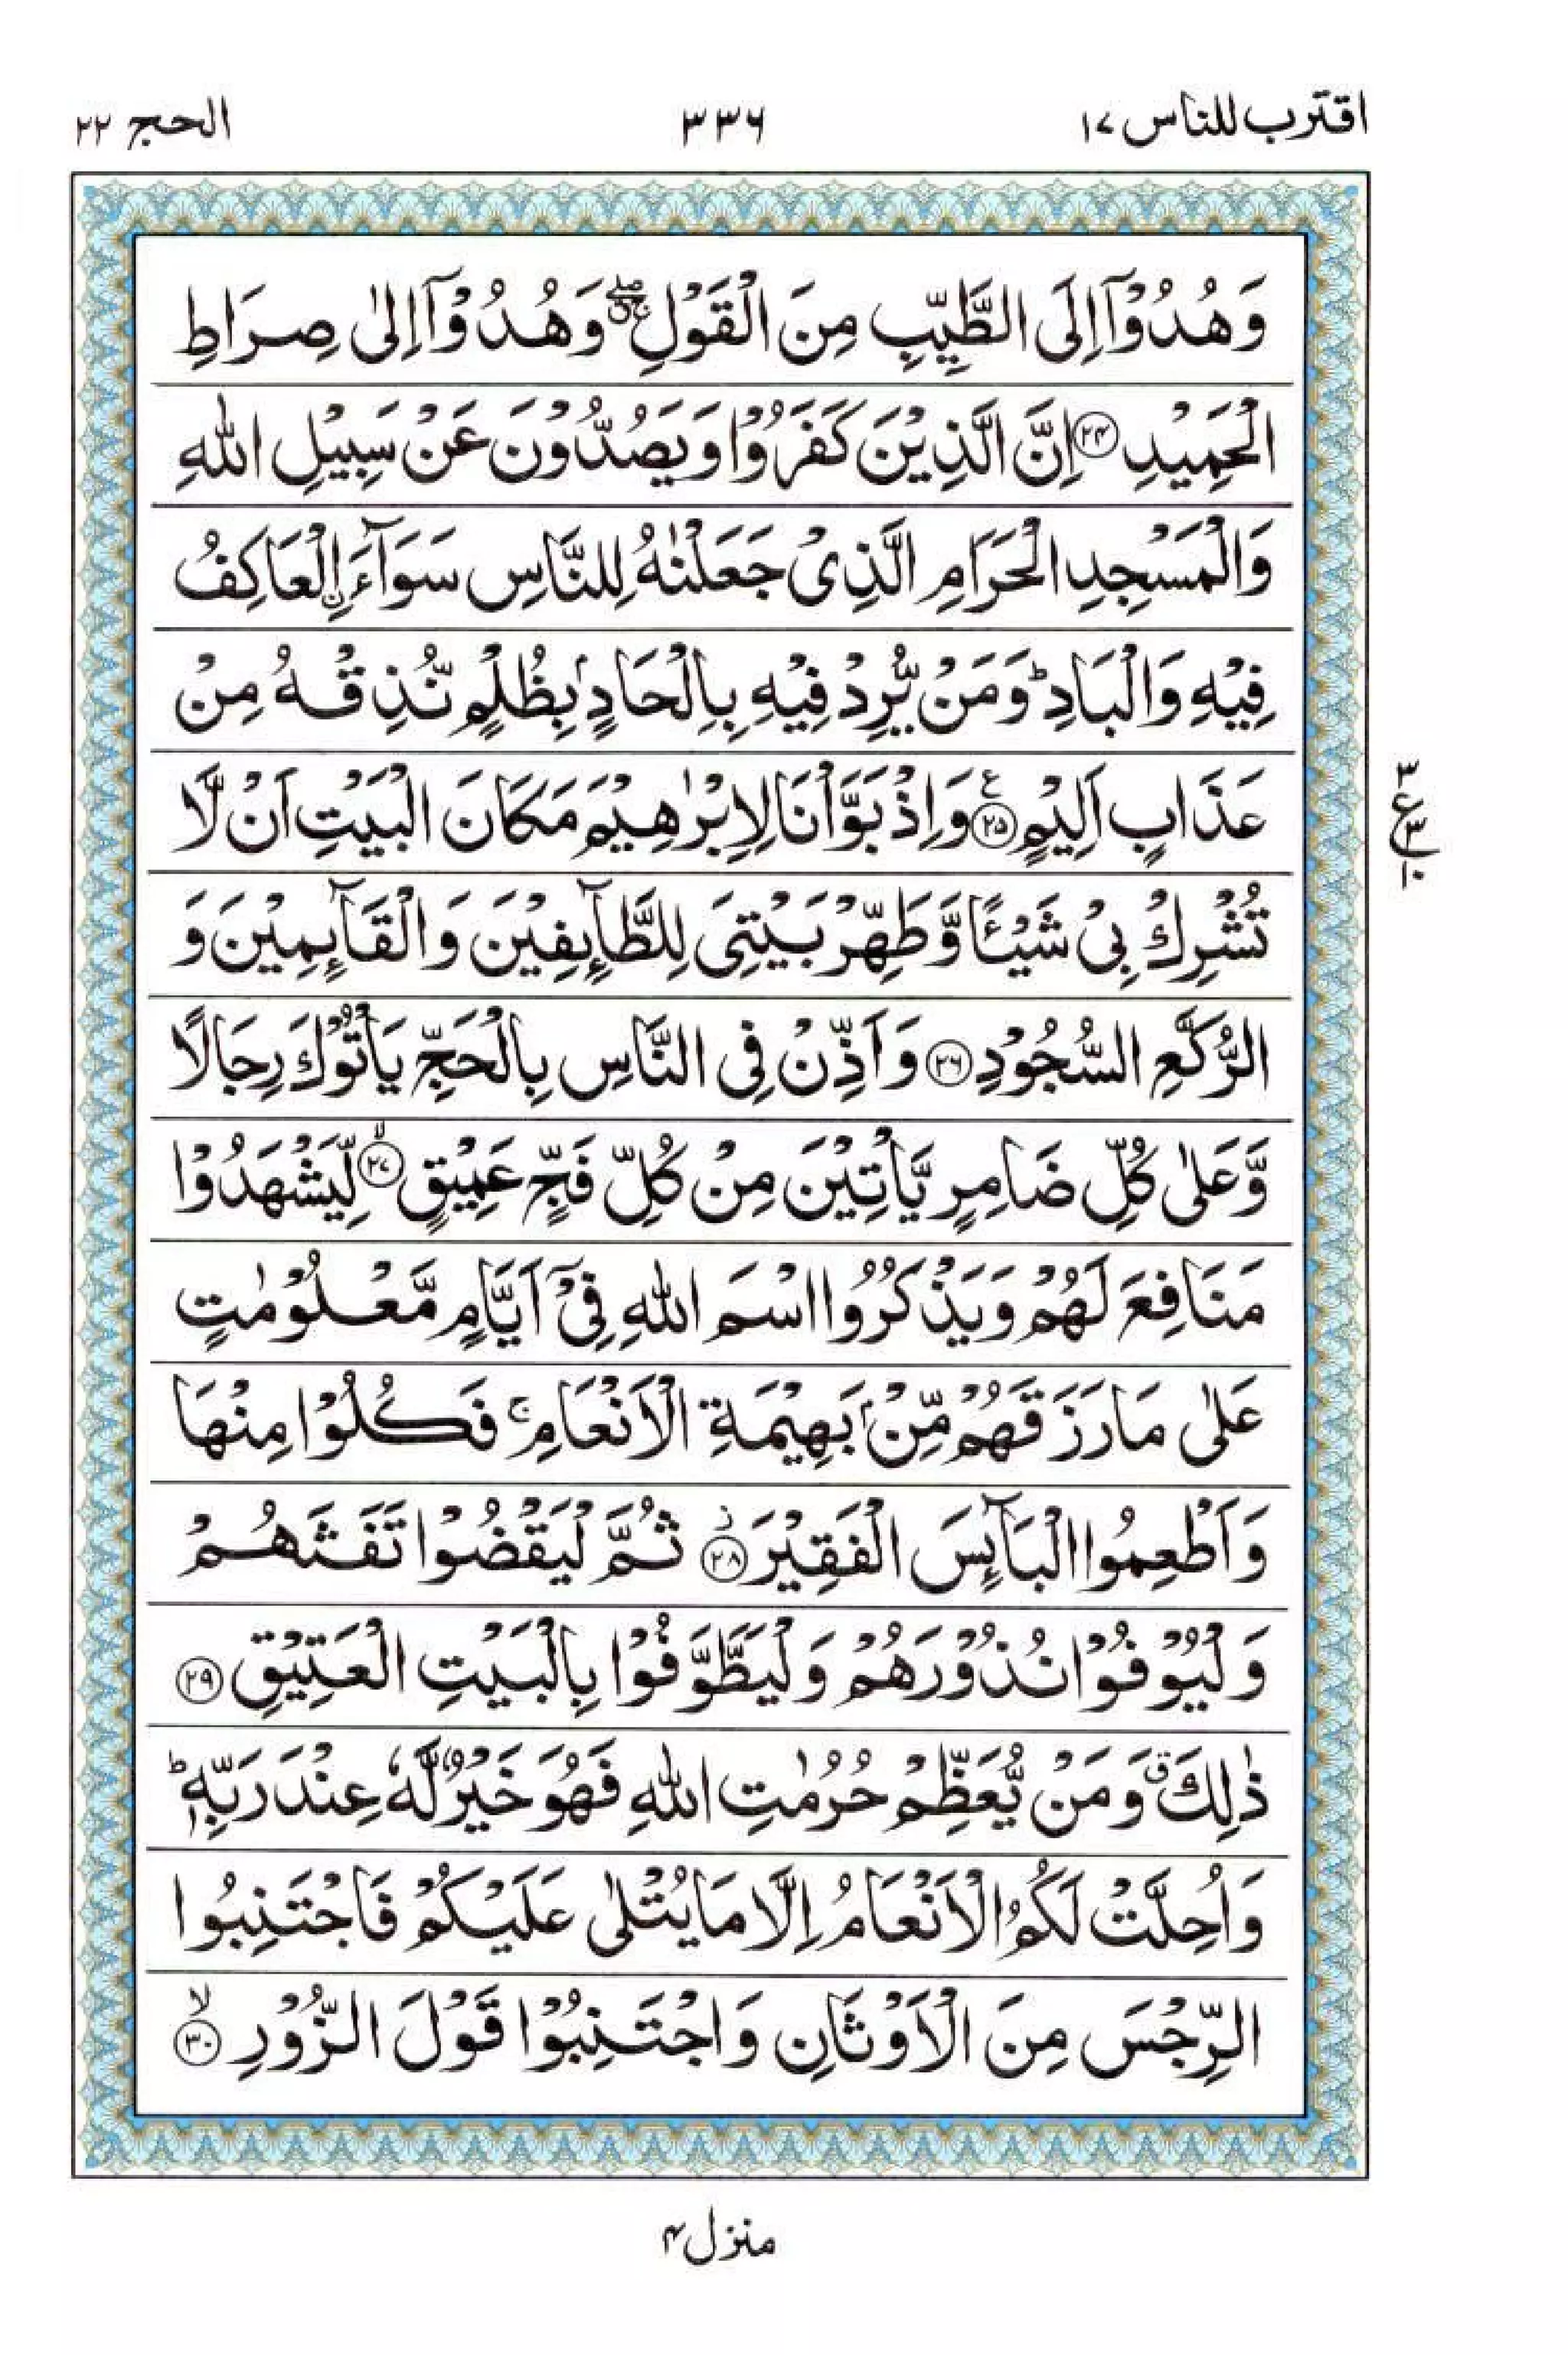 اقترب للناس ۱۷
۳۳۶
الحج ۲۲
وَهُدُوْۤا اِلَى الطَّيِّبِ مِنَ الْقَوْلِ ۚۖ وَهُدُوْۤا اِلٰى صِرَاطِ
الْحَمِيْدِ ﴿۲۴﴾ اِنَّ الَّذِيْنَ كَفَرُوْا وَيَصُدُّوْنَ عَنْ سَبِيْلِ اللّٰهِ
وَالْمَسْجِدِ الْحَرَامِ الَّذِىْ جَعَلْنٰهُ لِلنَّاسِ سَوَآءَ ۨ الْعَاكِفُ
فِيْهِ وَالْبَادِ ؕ وَمَنْ يُّرِدْ فِيْهِ بِاِلْحَادٍۭ بِظُلْمٍ نُّذِقْهُ مِنْ
عَذَابٍ اَلِيْمٍ ﴿۲۵﴾ ع وَاِذْ بَوَّاْنَا لِاِبْرٰهِيْمَ مَكَانَ الْبَيْتِ اَنْ لَّا
تُشْرِكْ بِىْ شَيْـًٔا وَّطَهِّرْ بَيْتِىَ لِلطَّآٮِٕفِيْنَ وَالْقَآٮِٕمِيْنَ وَ
الرُّكَّعِ السُّجُوْدِ ﴿۲۶﴾ وَاَذِّنْ فِى النَّاسِ بِالْحَجِّ يَاْتُوْكَ رِجَالًا
وَّعَلٰى كُلِّ ضَامِرٍ يَّاْتِيْنَ مِنْ كُلِّ فَجٍّ عَمِيْقٍ ﴿۲۷﴾ ۙ لِّيَشْهَدُوْا
مَنَافِعَ لَهُمْ وَيَذْكُرُوا اسْمَ اللّٰهِ فِىْۤ اَيَّامٍ مَّعْلُوْمٰتٍ
عَلٰى مَا رَزَقَهُمْ مِّنْۢ بَهِيْمَةِ الْاَنْعَامِ ۚ فَكُلُوْا مِنْهَا
وَاَطْعِمُوا الْبَآٮِٕسَ الْفَقِيْرَ ﴿۲۸﴾ ز ثُمَّ لْيَقْضُوْا تَفَثَهُمْ
وَلْيُوْفُوْا نُذُوْرَهُمْ وَلْيَطَّوَّفُوْا بِالْبَيْتِ الْعَتِيْقِ ﴿۲۹﴾
ذٰلِكَ ق وَمَنْ يُّعَظِّمْ حُرُمٰتِ اللّٰهِ فَهُوَ خَيْرٌ لَّهٗ عِنْدَ رَبِّهٖ ؕ
وَاُحِلَّتْ لَكُمُ الْاَنْعَامُ اِلَّا مَا يُتْلٰى عَلَيْكُمْ فَاجْتَنِبُوا
الرِّجْسَ مِنَ الْاَوْثَانِ وَاجْتَنِبُوْا قَوْلَ الزُّوْرِ ﴿۳۰﴾ ۙ
۳
ع ۳
۱۰
منزل ۴